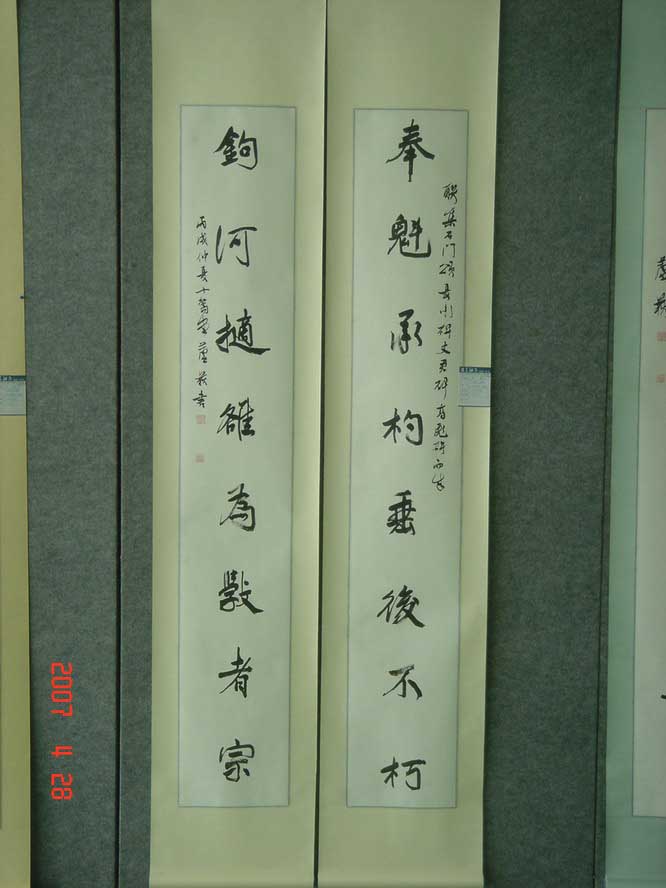 奉魁承杓垂後不朽
聯集石門頌
鉤河擿雒為斆者宗
丙戌仲夏十笏 蘆荻書
蘆荻
2007 4 28